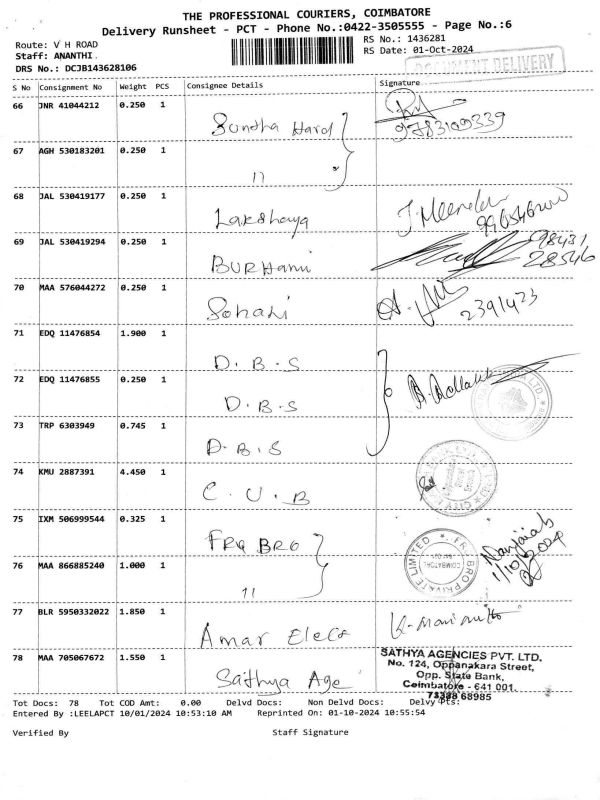 THE PROFESSIONAL COURIERS, COIMBATORE
Delivery Runsheet - PCT - Phone No.:0422-3505555 - Page No.:6
Route: V H ROAD
RS No.: 1436281
Staff: ANANTHI.
RS Date: 01-Oct-2024
DRS No.: DCJB143628106
DOCUMENT DELIVERY
S No Consignment No Weight PCS Consignee Details Signature
66 JNR 41044212 0.250 1 Sundha Hard 9783109339
67 AGH 530183201 0.250 1 11
68 JAL 530419177 0.250 1 Lakshaya
69 JAL 530419294 0.250 1 BURHani 98431
28546
70 MAA 576044272 0.250 1 Sohani 2391423
71 EDQ 11476854 1.900 1 D.B.S
72 EDQ 11476855 0.250 1 D.B.S
73 TRP 6303949 0.745 1 D.B.S
74 KMU 2887391 4.450 1 C.U.B
75 IXM 506999544 0.325 1 FRQ BRO
1/10/2024
76 MAA 866885240 1.000 1 11
77 BLR 5950332022 1.850 1 Amar Elect
78 MAA 705067672 1.550 1 Sathya Age
SATHYA AGENCIES PVT. LTD.
No. 124, Oppanakara Street,
Opp. State Bank,
Coimbatore - 641 001.
73388 68985
Tot Docs: 78 Tot COD Amt: 0.00 Delvd Docs: Non Delvd Docs: Delvy Pts:
Entered By :LEELAPCT 10/01/2024 10:53:10 AM Reprinted On: 01-10-2024 10:55:54
Verified By Staff Signature